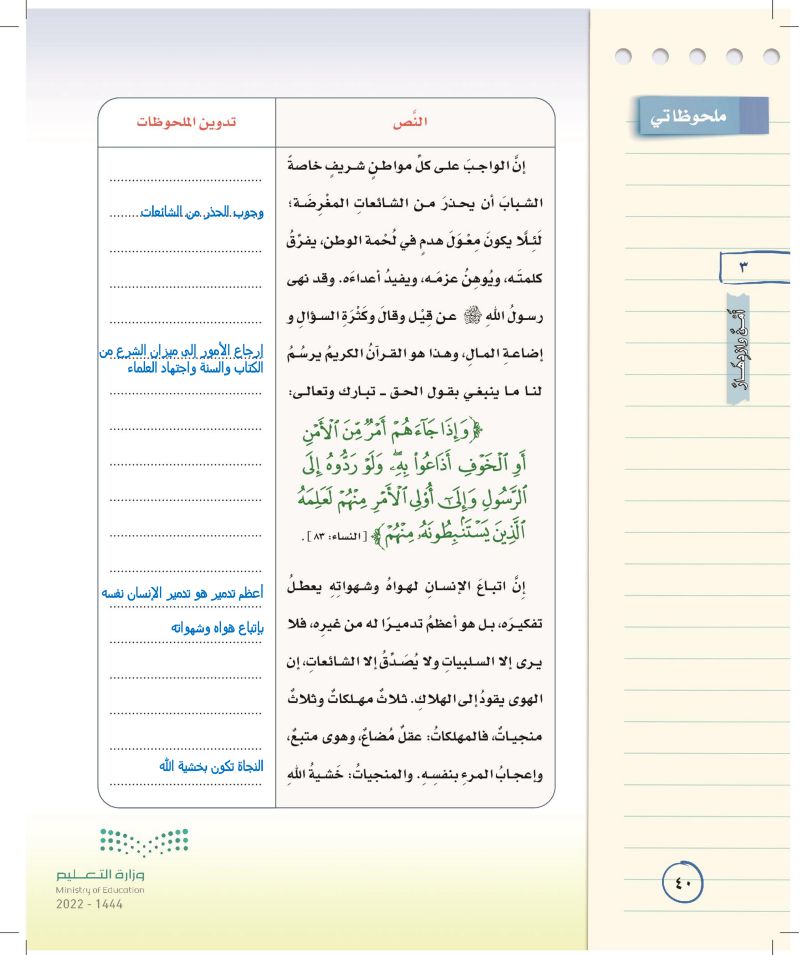 ملحوظاتي
٣
النَّص
تدوين الملحوظات
إنَّ الواجبَ على كلِّ مواطنٍ شريفٍ خاصةً
الشبابَ أن يحذرَ من الشائعاتِ المغْرِضَة؛
لَئِلَّا يكونَ مِعْوَلَ هدمٍ في لُحْمة الوطنِ، يفرِّقُ
كلمتَه، ويُوهِنُ عزمَه، ويفيدُ أعداءَه. وقد نهى
رسولُ اللهِ ﷺ عن قِيْل وقالَ وكَثْرَةِ السؤالِ و
إضاعةِ المالِ، وهذا هو القرآنُ الكريمُ يرسُمُ
لنا ما ينبغي بقول الحق - تبارك وتعالى:
﴿وَإِذَا جَآءَهُمْ أَمْرٌ مِّنَ ٱلْأَمْنِ
أَوِ ٱلْخَوْفِ أَذَاعُوا۟ بِهِۦ وَلَوْ رَدُّوهُ إِلَى
ٱلرَّسُولِ وَإِلَىٰٓ أُو۟لِى ٱلْأَمْرِ مِنْهُمْ لَعَلِمَهُ
ٱلَّذِينَ يَسْتَنۢبِطُونَهُۥ مِنْهُمْ﴾ [النساء: ٨٣].
إنَّ اتباعَ الإنسانِ لهواهُ وشهواتِهِ يعطلُ
تفكيرَه، بل هو أعظمُ تدميرًا له من غيرِه، فلا
يرى إلا السلبياتِ ولا يُصَدِّقُ إلا الشائعاتِ، إن
الهوى يقودُ إلى الهلاكِ. ثلاثٌ مهلكاتٌ وثلاثٌ
منجياتٌ، فالمهلكاتُ: عقلٌ مُضاعٌ، وهوى متبعٌ،
وإعجابُ المرءِ بنفسِهِ. والمنجياتُ: خَشيةُ اللهِ
وجوب الحذر من الشائعات
إرجاع الأمور إلى ميزان الشرع من
الكتاب والسنة واجتهاد العلماء
أعظم تدمير هو تدمير الإنسان نفسه
بإتباع هواه وشهواته
النجاة تكون بخشية الله
وزارة التعـــليم
Ministry of Education
2022 - 1444
٤٠